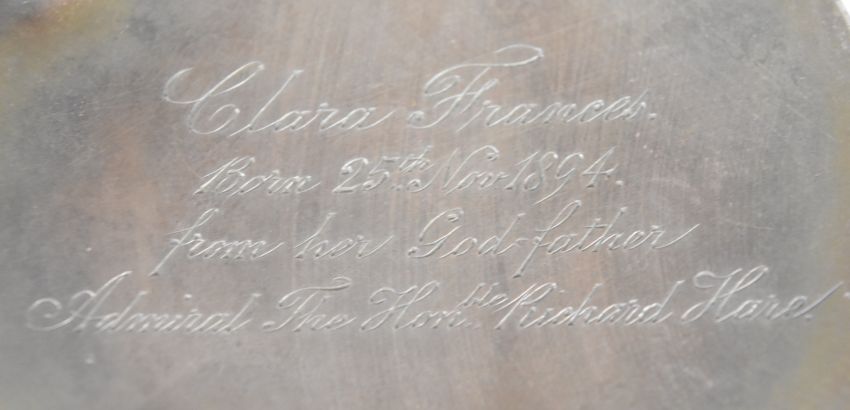 Clara Frances.
Born 25th Nov. 1894.
from her God-father
Admiral The Hon.ble Richard Hare.